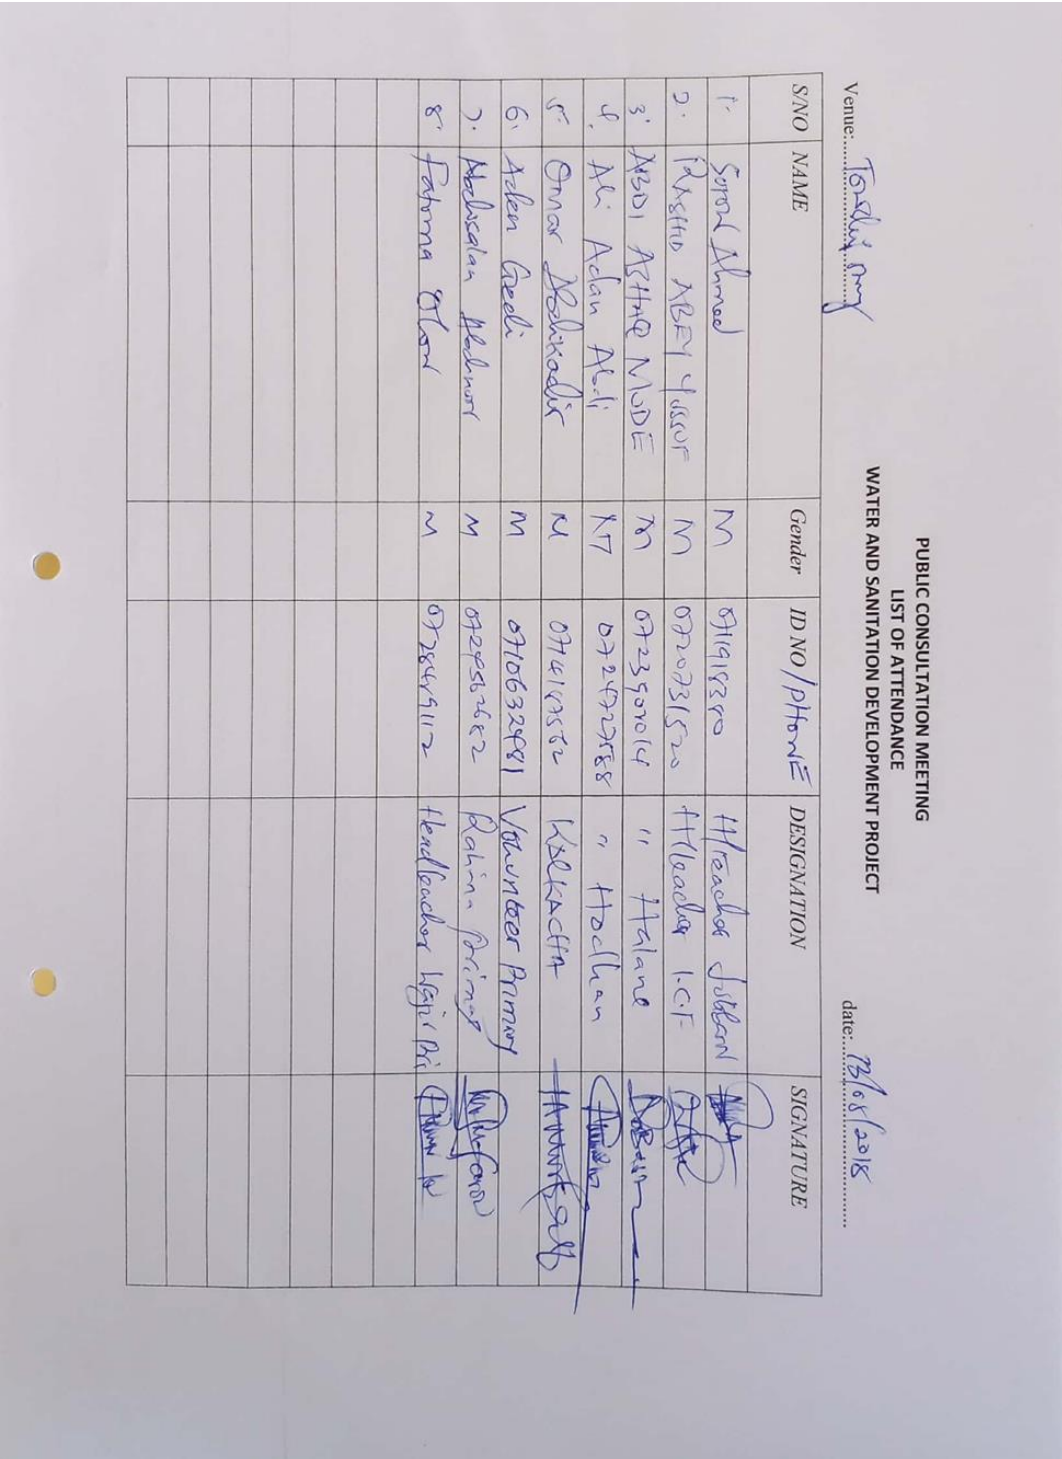 PUBLIC CONSULTATION MEETING
LIST OF ATTENDANCE
WATER AND SANITATION DEVELOPMENT PROJECT
Venue: date: 13/08/2018
S/NO NAME Gender ID NO/PHONE DESIGNATION SIGNATURE
1. Ahmed M 0719118380 H/Teacher
2. RASHID ABEY YUSSUF M 0720731520 H/teacher I.C.F
3. ABDI ASHAQ MUDE M 0723901014 " Halane
4. Ali Adan Abdi M 0724727588 " Hodhan
5. Omar Abdikadir M 0714187562 KALKACHA
6. Aden Gedi M 0710632981 Volunteer Primary
7. Abdisalan Abdinoor M 0729562682 Rahma Primary
8. Fatuma M 0728489112 Headteacher Wajir Pri